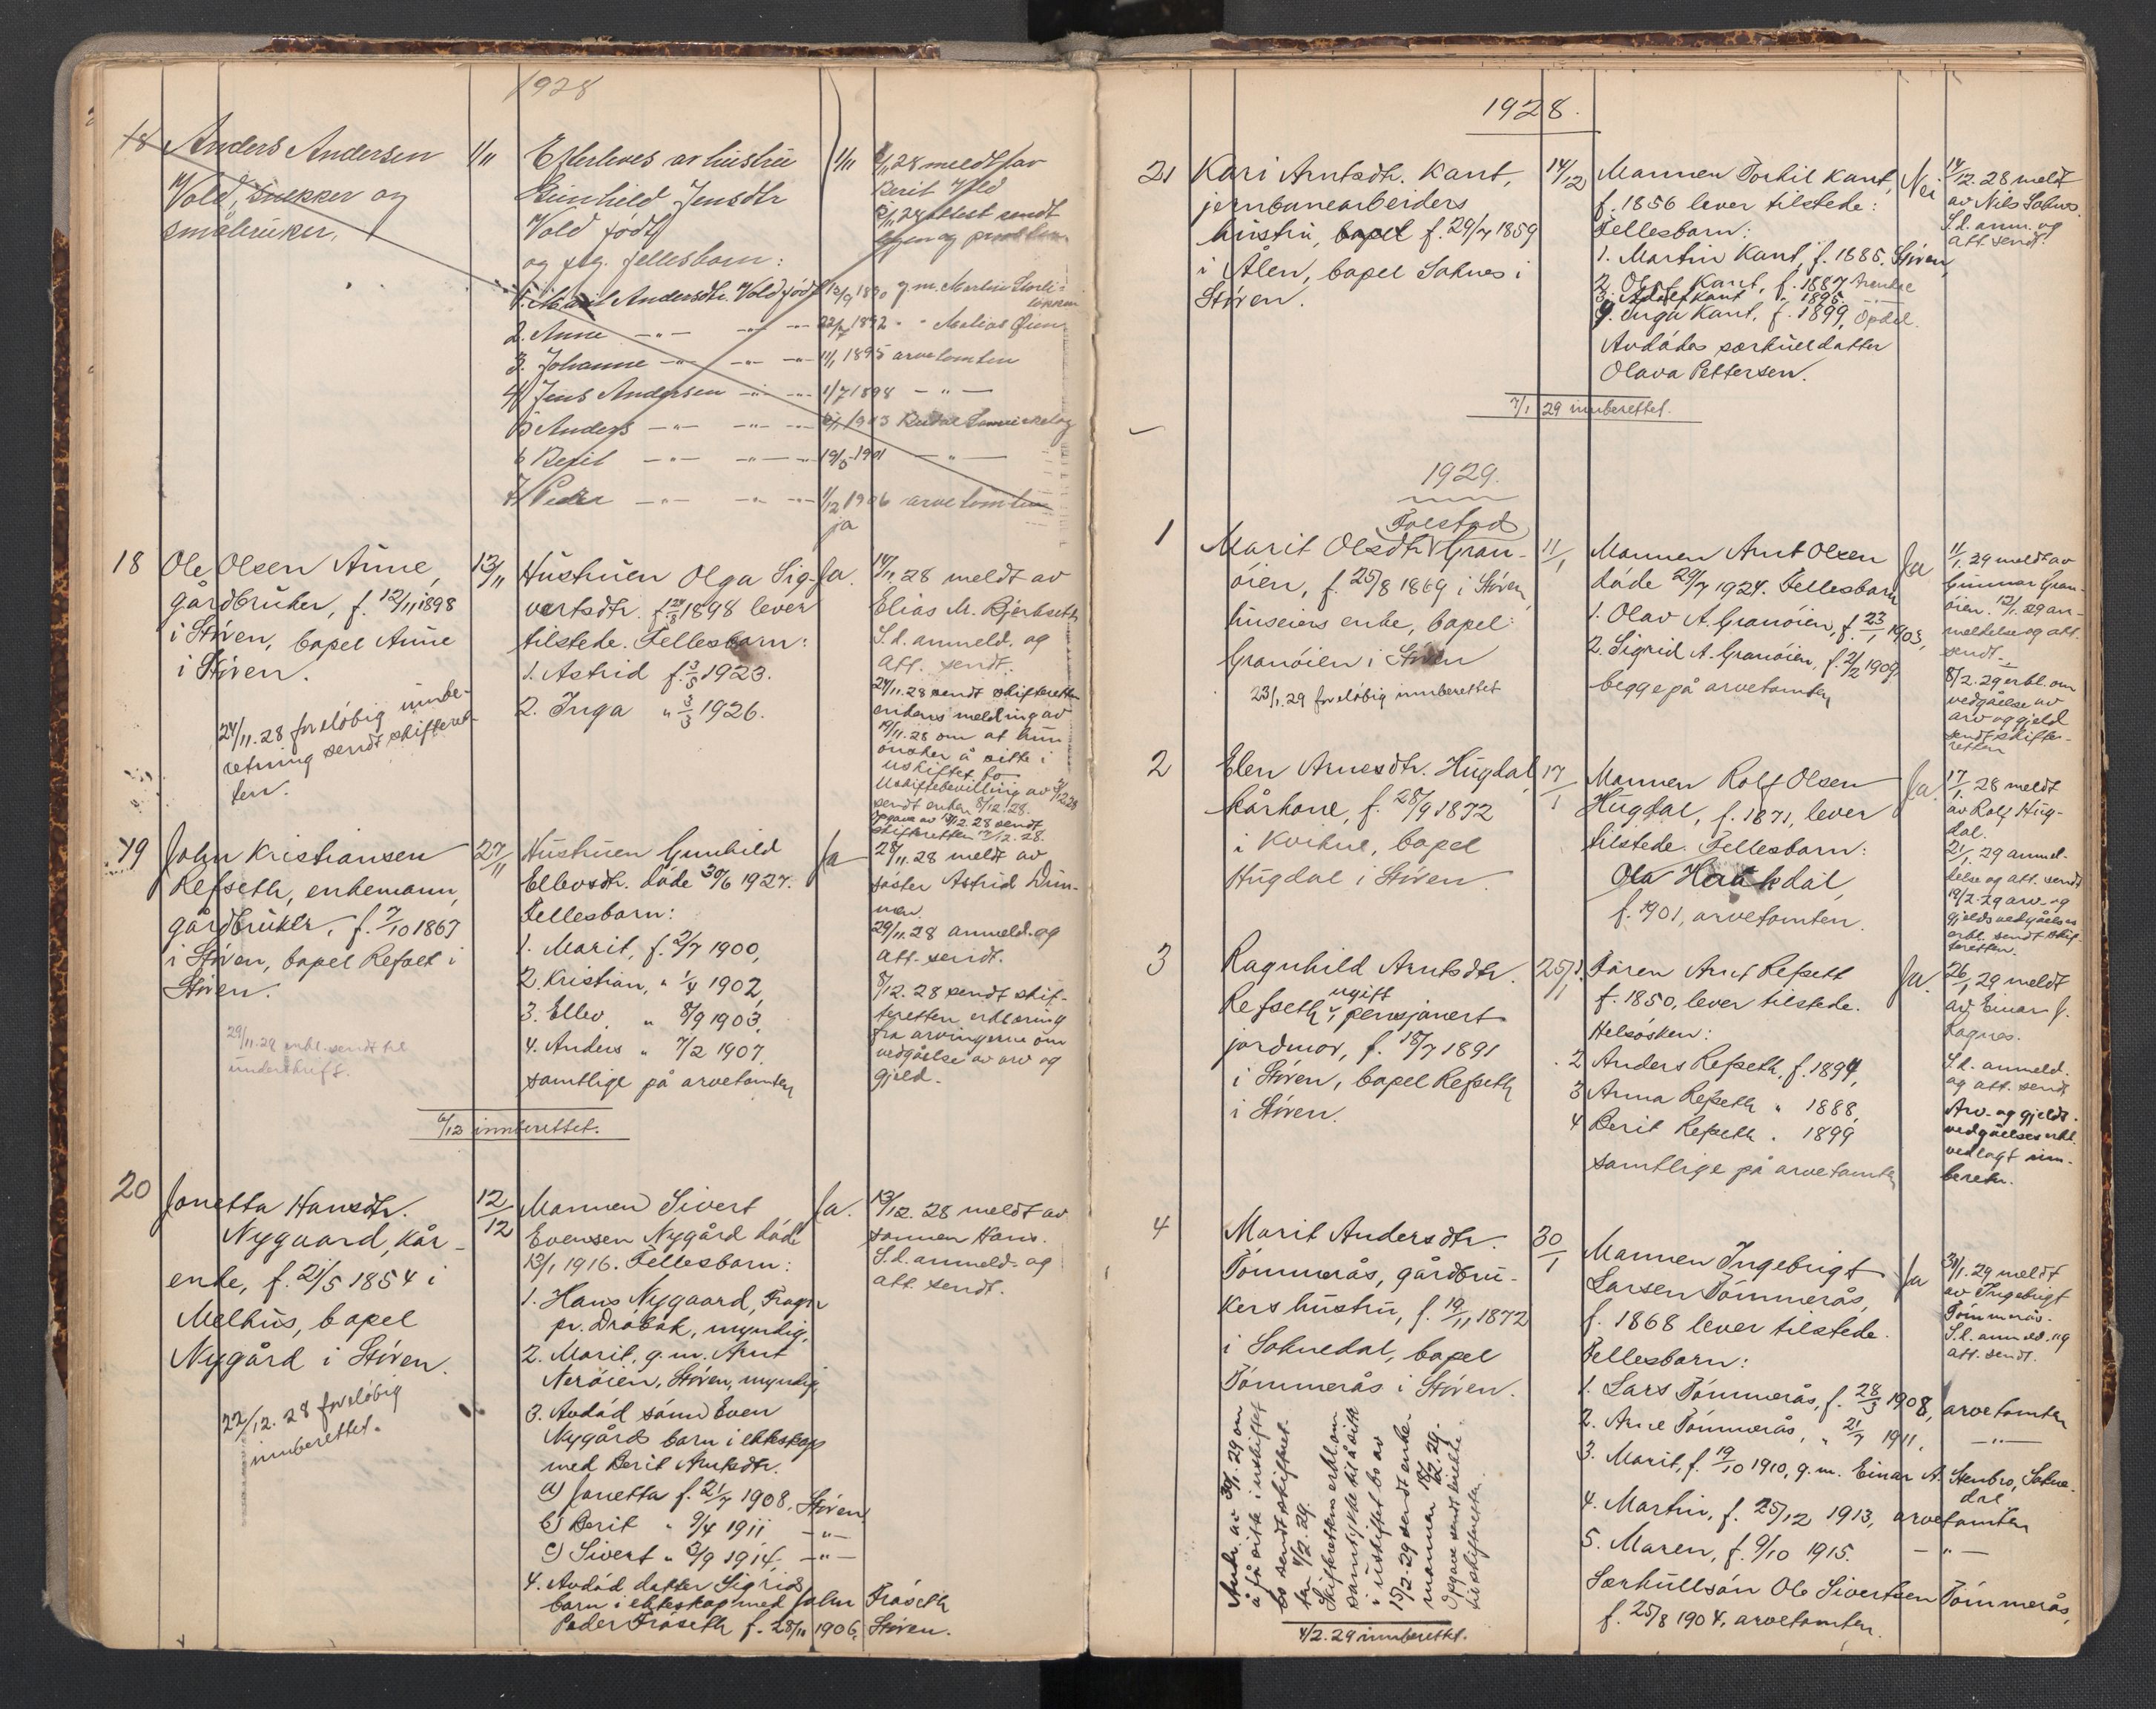 1928
18 Anders Andersen
Vold, snekker og
småbruker.
1/11
Efterleves av hustru
Gunhild Jensdtr
Vold født
og flg. fellesbarn:
1. Marit Andersdtr. Vold født 12/9 1890 g. m. Martin
2. Anne —"— —"— 22/7 1892 " " Øien
3. Johanne —"— —"— 11/1 1895 arvetomten
4. Jens Andersen —"— 1/7 1898 —"—
5 Anders —"— —"— 1903
6 Berit —"— —"— 19/5 1901 —"—
7 Peder —"— —"— 1/12 1906 arvetomten
ja
1/11
28 meldt av
Berit Vold
28 attest sendt
18 Ole Olsen Aune,
gårdbruker, f. 12/11 1898
i Støren, bopel Aune
i Støren.
24/11.28 foreløbig innbe-
retning sendt skifteret-
ten.
13/11
Hustruen Olga Sig-
vartsdtr. f. 24/8 1898 lever
tilstede. Fellesbarn:
1. Astrid f. 3/5 1923.
2. Inga " 3/3 1926.
Ja.
14/11.28 meldt av
Elias M. Bjerkseth
S.d. anmeld. og
att. sendt.
24/11.28 sendt skifteretten
enkens melding av
19/11.28 om at hun
ønsker å sitte i
uskiftet bo
Uskiftebevilling av 3/12 28
sendt enken 8/12.28.
Opgave av 13/12.28 sendt
skifteretten 17/12.28.
19 John Kristiansen
Refseth, enkemann,
gårdbruker, f. 7/10 1867
i Støren, bopel Refset i
Støren.
29/11.28 erkl. sendt til
underskrift.
27/11
Hustruen Gunhild
Ellevsdtr. døde 30/6 1927.
Fellesbarn:
1. Marit, f. 2/7 1900,
2. Kristian, " 1/4 1902,
3. Ellev " 8/9 1903,
4. Anders " 7/2 1907.
samtlige på arvetomten
Ja
28/11.28 meldt av
søster Astrid
29/11.28 anmeld. og
att. sendt.
8/12.28 sendt skif-
teretten erklæring
fra arvingerne om
vedgåelse av arv og
gjeld.
6/12 innberettet.
20 Jonetta Hansdtr.
Nygaard, kår-
enke, f. 21/5 1854 i
Melhus, bopel
Nygård i Støren.
22/12.28 foreløbig
innberettet.
12/12
Mannen Sivert
Evensen Nygård døde
13/1 1916. Fellesbarn:
1. Hans Nygaard, Frogn
pr. Drøbak, myndig,
2. Marit, g. m. Arnt
Nerøien, Støren, myndig,
3. Avdød sønn Even
Nygårds barn i ekteskap
med Berit Arntsdtr.
a) Jonetta f. 21/7 1908, Støren
b) Berit " 9/4 1911 —"—
c) Sivert " 3/9 1914, —"—
4. Avdød datter Sigrids
barn i ekteskap med John Frøseth
Peder Frøseth f. 28/11 1906, Støren.
Ja.
13/12.28 meldt av
sønnen Hans.
S.d. anmeld. og
att. sendt.
1928.
21 Kari Arntsdtr. Kant,
jernbanearbeiders
hustru, bopel f. 29/7 1859
i Ålen, bopel Soknes i
Støren.
14/12
Mannen Torkil Kant,
f. 1856 lever tilstede:
Fellesbarn:
1. Martin Kant, f. 1885, Støren,
2. Olaf Kant, f. 1887
3. Adolf Kant " 1895 —"—
4. Inga Kant, f. 1899, Opdal.
Avdødes særkuldatter
Olava Pettersen.
Nei
14/12.28 meldt
av Nils Soknes.
S.d. anm. og
att. sendt.
7/1 29 innberettet.
1929.
1 Marit Olsdtr. Folstad Gran-
øien, f. 25/8 1869 i Støren,
huseiers enke, bopel:
Granøien i Støren
23/1.29 foreløbig innberettet
11/1
Mannen Arnt Olsen
døde 29/7 1924. Fellesbarn
1. Olav A. Granøien, f. 23/1 1903,
2. Sigrid A. Granøien, f. 2/2 1909,
begge på arvetomten
Ja
11/1.29 meldt av
Gunnar Gran-
øien. 12/1.29 an-
meldelse og att.
sendt.
8/2.29 erkl. om
vedgåelse av
arv og gjeld
sendt skifte-
retten
2 Elen Arnesdtr. Hugdal,
kårkone, f. 28/9 1872
i Kvikne, bopel
Hugdal i Støren.
17/1
Mannen Rolf Olsen
Hugdal, f. 1871, lever
tilstede. Fellesbarn:
Ola
f. 1901, arvetomten.
Ja.
17/1.28 meldt
av Rolf Hug-
dal.
21/1.29 anmel-
delse og att. sendt
19/2.29 arv- og
gjeldsvedgåelses
erkl. sendt skif-
teretten.
3 Ragnhild Arntsdtr.
Refseth, ugift pensjonert
jordmor, f. 18/7 1891
i Støren, bopel Refseth
i Støren.
25/1
1. Faren Arnt Refsett
f. 1850, lever tilstede.
Helsøsken:
2 Anders Refseth, f. 1894,
3 Anna Refseth " 1888,
4 Berit Refseth " 1899
samtlige på arvetomten
Ja.
26/1 29 meldt
av Einar J.
Ragnes.
S.d. anmeld.
og att. sendt
Arv- og gjelds-
vedgåelseserkl.
vedlagt inn-
beretn.
4 Marit Andersdtr.
Tømmerås, gårdbru-
kers hustru, f. 19/11 1872
i Soknedal, bopel
Tømmerås i Støren.
Andr. av 30/1.29 om
å få sitte i uskiftet
bo sendt skifteret-
ten 4/2.29.
Skifterettens erkl. om
samtykke til å sitte
i uskiftet bo av
15/2.29 sendt enke-
mannen 18/2.29.
Opgave sendt
til skifteretten
4/2.29 innberettet.
30/1
Mannen Ingebrigt
Larsen Tømmerås,
f. 1868 lever tilstede.
Fellesbarn:
1. Lars Tømmerås, f. 28/3 1908, arvetomten
2. Arne Tømmerås, " 21/7 1911, —"—
3. Marit, f. 19/10 1910, g. m. Einar A. Stenbro, Sokne-
dal
4. Martin, f. 25/12 1913, arvetomten
5. Maren, f. 9/10 1915. —"—
Særkullsøn Ole Sivertsen Tømmerås,
f. 25/8 1904, arvetomten.
Ja
31/1.29 meldt
av Ingebrigt
Tømmerås.
S.d. anmeld. og
att. sendt.